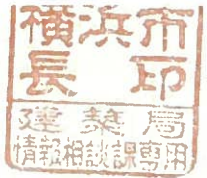 横浜市
長印
建築局
情報相談課専用